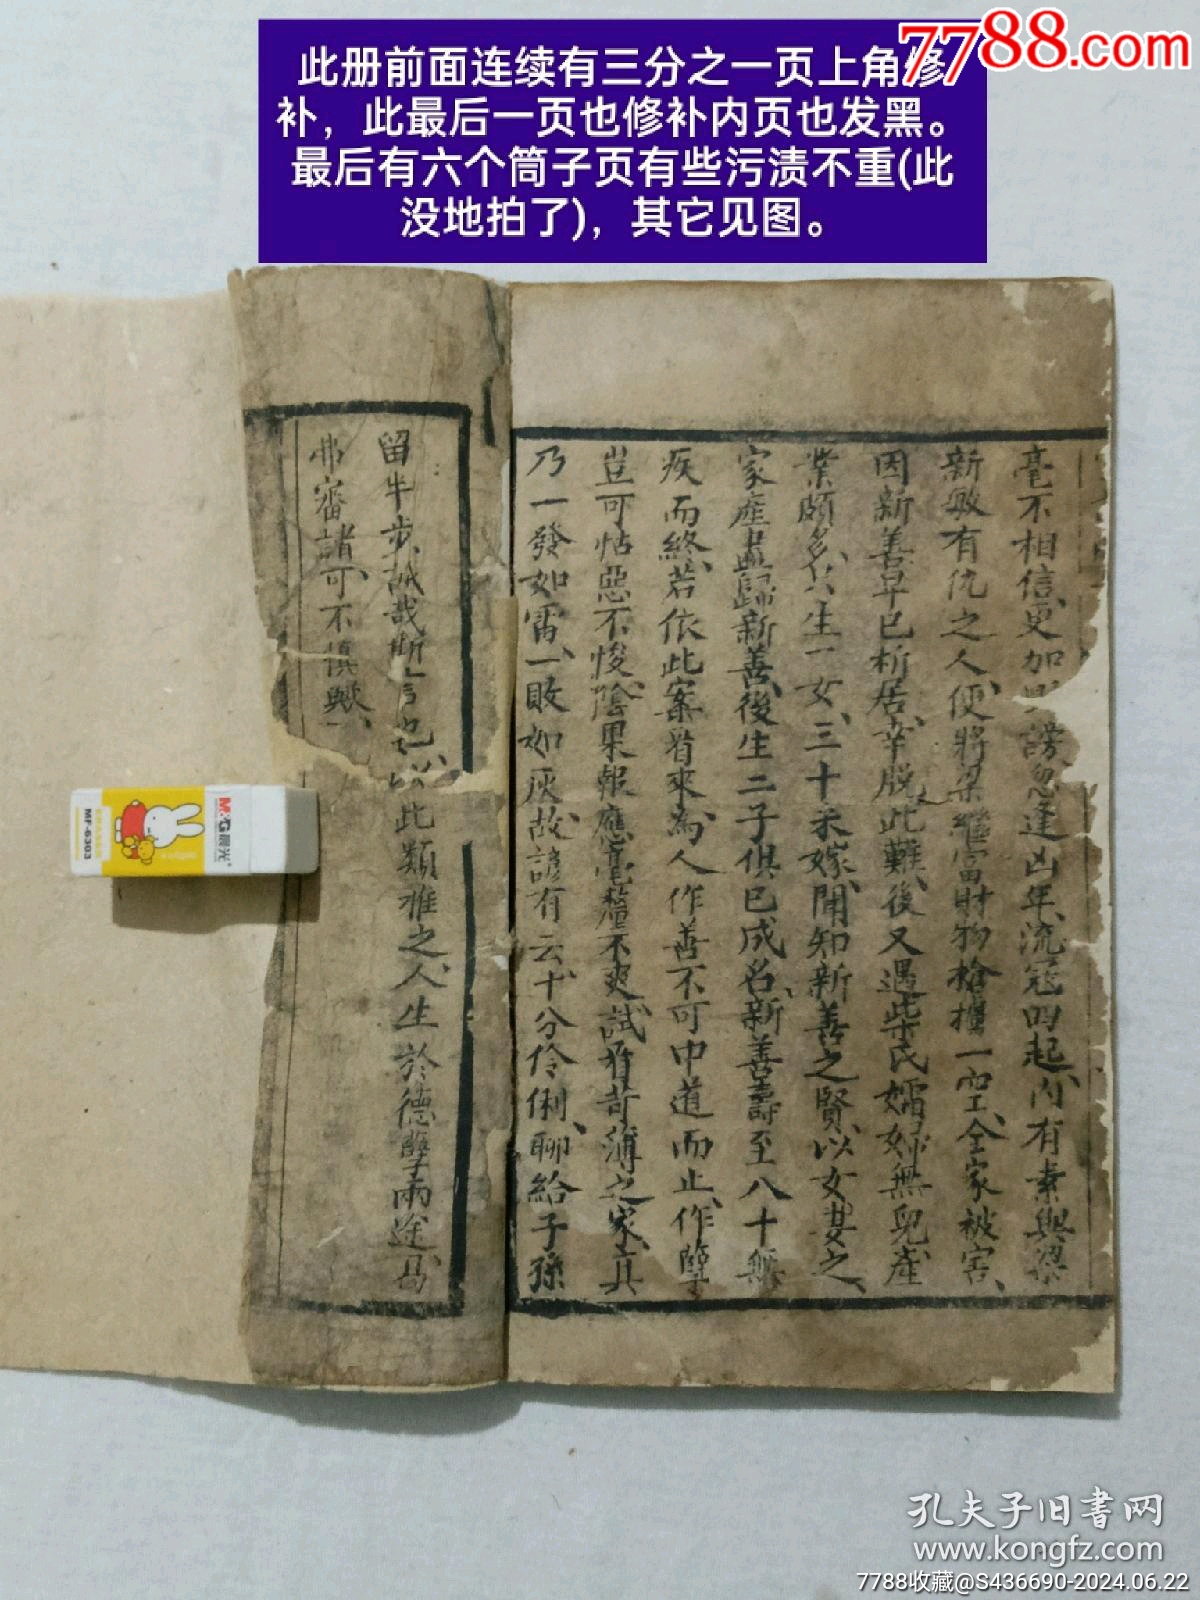 7788.com
此册前面连续有三分之一页上角修
补，此最后一页也修补内页也发黑。
最后有六个筒子页有些污渍不重(此
没地拍了)，其它见图。
毫不相信、更加謗、忽逢凶年、流冦四起、内有素與梁
新敏有仇之人、便將梁繼富財物槍擄一空、全家被害、
因新善早已析居、幸脱此難、後又遇柴氏孀婦無兒、産
業頗多、只生一女、三十未嫁、聞知新善之賢、以女妻之、
家産盡歸新善、後生二子俱已成名、新善壽至八十無
疾而終、若依此案看來、為人作善不可中道而止、作孽
豈可怙惡不悛、陰果報應毫釐不爽、試看苛薄之家、其
乃一發如雷、一敗如灰、故諺有云、十分伶俐、聊給子孫
留半步、誠哉斯言也、以此類推之、人生於德孽兩途、曷
弗審諸、可不慎歟、
M&G晨光
MF-6303
孔夫子旧書网
www.kongfz.com
7788收藏@S436690-2024.06.22